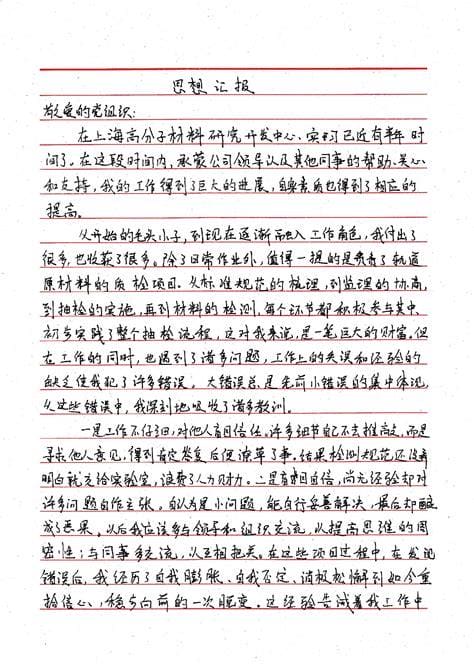 思想汇报
敬爱的党组织：
在上海高分子材料研究开发中心实习已近有半年时
间了。在这段时间内，承蒙公司领导以及其他同事的帮助、关心
和支持，我的工作得到了巨大的进展，自身素质也得到了相应的
提高。
从开始的毛头小子，到现在逐渐融入工作角色，我付出了
很多，也收获了很多。除了日常作业外，值得一提的是负责了轨道
原材料的质检项目。从标准规范的梳理，到监理的协商，
到抽检的实施，再到材料的检测，每个环节都积极参与其中，
初步实践了整个抽检流程，这对我来说，是一笔巨大的财富。但
在工作的同时，也遇到了诸多问题，工作上的失误和经验的
缺乏使我犯了许多错误。大错误总是先前小错误的集中体现，
从这些错误中，我深刻地吸收了诸多教训。
一是工作不仔细，对他人盲目信任，许多细节自己不去推敲，而是
寻求他人意见，得到肯定答复后便潦草了事。结果检测规范还没弄
明白就交给实验室，浪费了人力财力。二是盲目自信，尚无经验却对
许多问题自作主张。自认为是小问题，能自行妥善解决，最后却酿
成了恶果。以后我应该多与领导和组织交流，以提高思维的周
密性；与同事多交流，以互相把关。在这些项目过程中，在发现
错误后，我经历了自我膨胀、自我否定、消极松懈到如今重
拾信心、稳步向前的一次蜕变。这经验告诫着我工作中